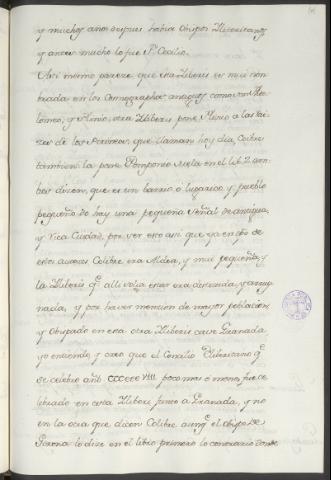 y muchos años despues habia Obispos Yliberitanos
y antes mucho lo fue Sn Cecilio.
Asi mismo parece que esta Yliberis es mui nom
brada en los Cosmographos antiguos como son Tho
lomeo, y Plinio, otra Yliberis pone Plinio a las rai
zes de los Perineos que llaman hoy dia, Colibre
tambien la pone Pomponio Mela en el lib. 2. am
bos dicen, que es un barrio ó lugarico y pueblo
pequeño do hay una pequeña señal de antigua,
y rica Ciudad, por ver esto asi que ya en tpo de
estos autores Colibre era Aldea, y mui pequeña, y
la Yliberis qe alli solia estar era destruida, y arrui
nada, y por haver mencion de mayor poblacion
y Obispado en esta otra Yliberis cave Granada
yo entiendo, y creo que el Concilio Eliberitano qe
se celebro año poco mas ó menos fue ce
lebrado en esta Yliberis junto a Granada, y no
en la otra que dicen Colibre aunqe el Obispo de
Girona lo dize en el libro primero lo contrario donde